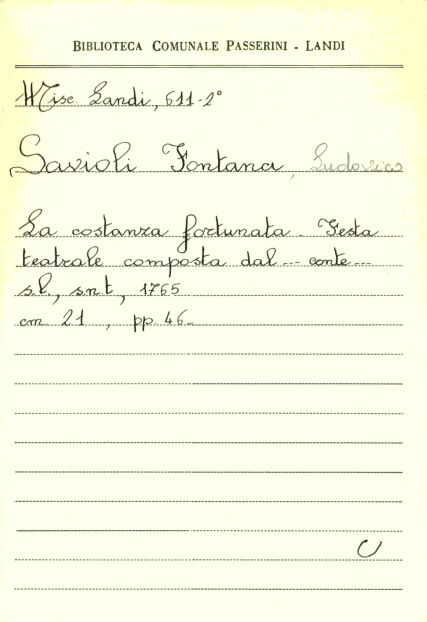 BIBLIOTECA COMUNALE PASSERINI - LANDI
Misc. Landi, 611-2°
Savioli Fontana, Ludovico
La costanza fortunata. Festa
teatrale composta dal --- conte ---
s.l., s.n.t, 1765
cm. 21 , pp. 46_
C